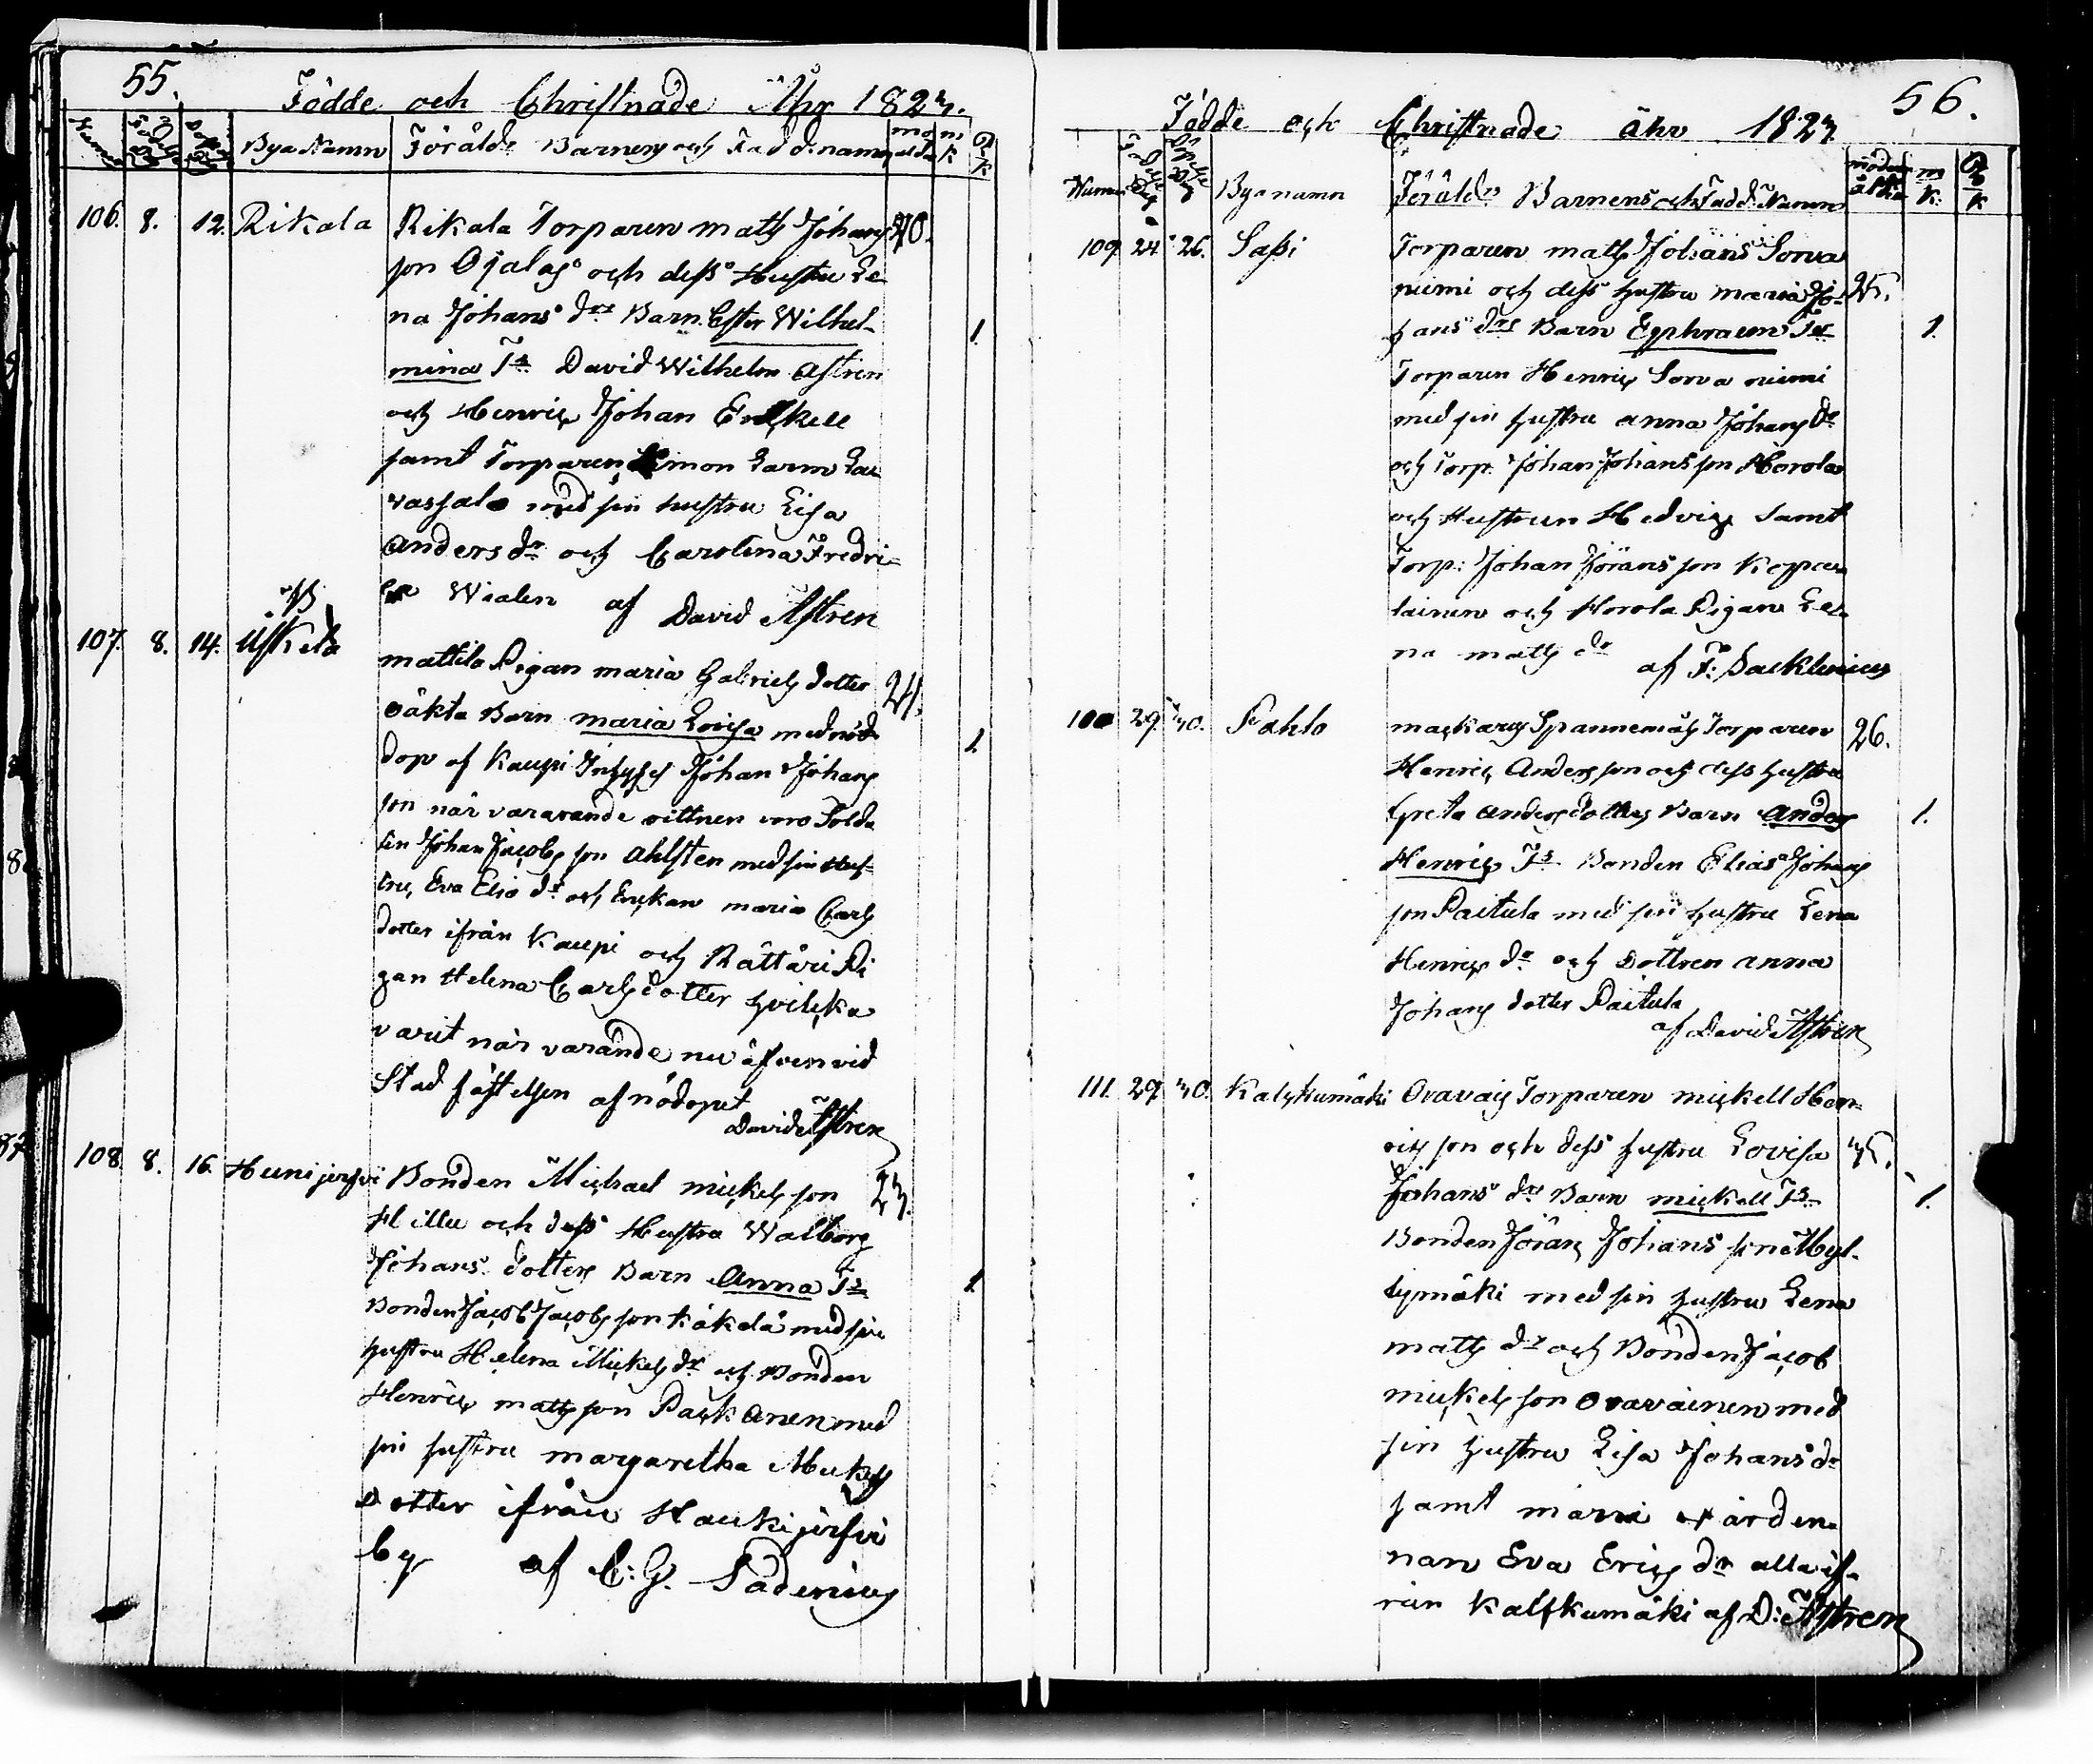 55.
Födde och Christnade Åhr 1823.
Bya Namn Föräld: Barnens och Fadd: namn
106. 8. 12. Rikala Rikala Torparen matts Johans 40.
son Ojalas och dess Hustru Le
na Johans drs Barn Ester Wilhel- 1.
mina Ts David Wilhelm Astren
och Henric Johan Enckell
samt Torparen Simon
vassalo med sin hustru Lisa
Anders dr och Carolina Fredri-
ca Wialen af David Astren
107. 8. 14. Uskela mattila Pigan maria Gabriels dotter 24.
oäkta Barn maria Lovisa med nöd 1.
dop af Kaupi Johan Johans
son när varavande vittnen voro Solda
ten Johan Jacobs son Ahlsten med sin Hus-
tru, Eva Elio dr och Enckan maria Carls
dotter ifrån Kaupi och Rättäri Pi
gan Helena Carls dotter hvilcka
varit när varande nu äfven vid
Stad fästelsen af nödopet
David Astren
108. 8. 16. Bonden Michael mickels son 23.
Hillu och dess Hustru Walborg
Johans dotters Barn Anna Ts 1.
Bonden Jacob Jacobs son Käkelä med sin
hustru Helena Mickels dr och Bonden
Henric matts son Packanen med
sin hustru margaretha Mickels
dotter ifrån Haukijerfvi
by af C: G. Paderius
56.
Födde och Christnade åhr 1823
Numer Bya namn Föräld: Barnens och Fadd: Namn
109. 24. 26. Sassi Torparen matts Johans Sorva
niemi och dess hustru maria Jo- 25.
hans drs Barn Ephraim Ts 1.
Torparen Henric Sorva niemi
med sin hustru anna Johans dr
och Torp. Johan Johans son Horola
och Hustrun Hedvig Samt
Torp: Johan Jörans son Koppa
lainen och Horola Pigan Le-
na matts dr af F: Sacklinius
29. 30. Pahlo mackarys Spannemäs Torparen 26.
Henric Anders son och dess hustru
Greta anders dotters Barn Anders 1.
Henric Ts Bonden Elias Johans
son Paitula med sin hustru Lena
Henrics dr och Dottren anna
Johans dotter Paitula
af David Astren
111. 29. 30. Kalfkumäki Oravais Torparen mickell Hen-
rics son och dess hustru Lovisa 35.
Johans drs Barn mickell Ts 1.
Bonden Jöran Johans son Myl-
lymäki med sin hustru Lena
matts dr och Bonden Jacob
mickels son Oravainen med
sin hustru Lisa Johans dr
samt
nan Eva Erics dr alla if-
rån Kalfkumäki af D: Astren